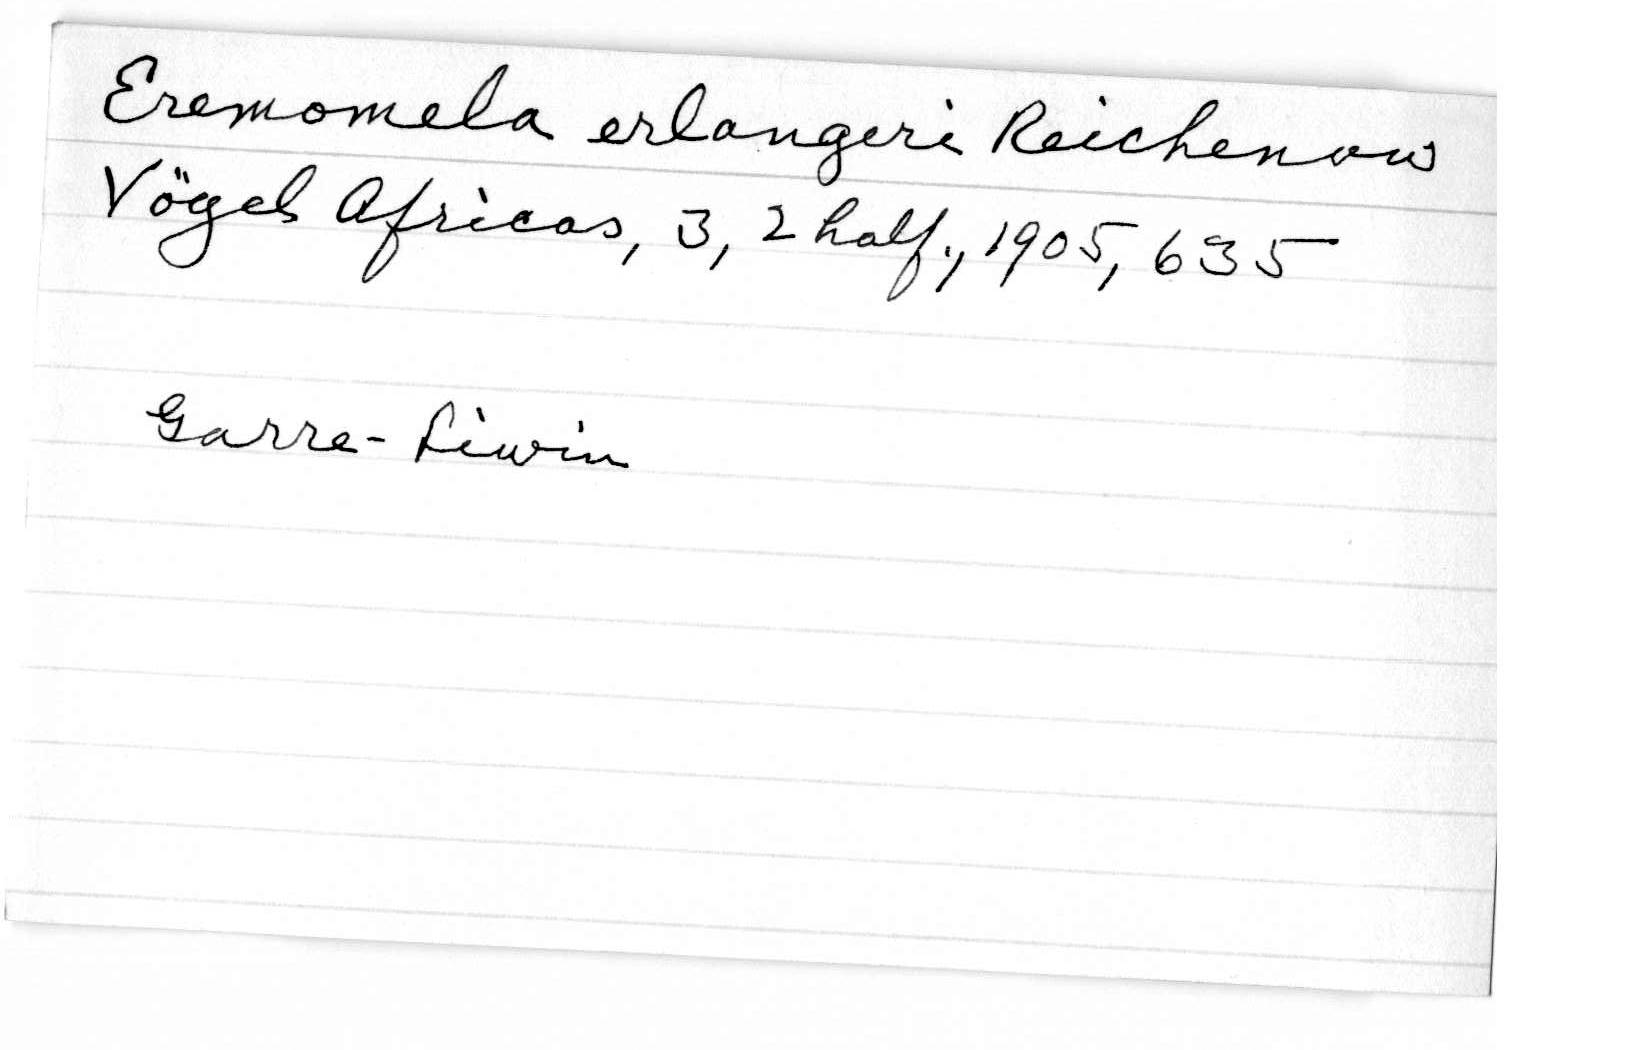 Eremomela erlangeri Reichenow
Vögel Africas, 3, 2 half., 1905, 635
Garre-Liwin